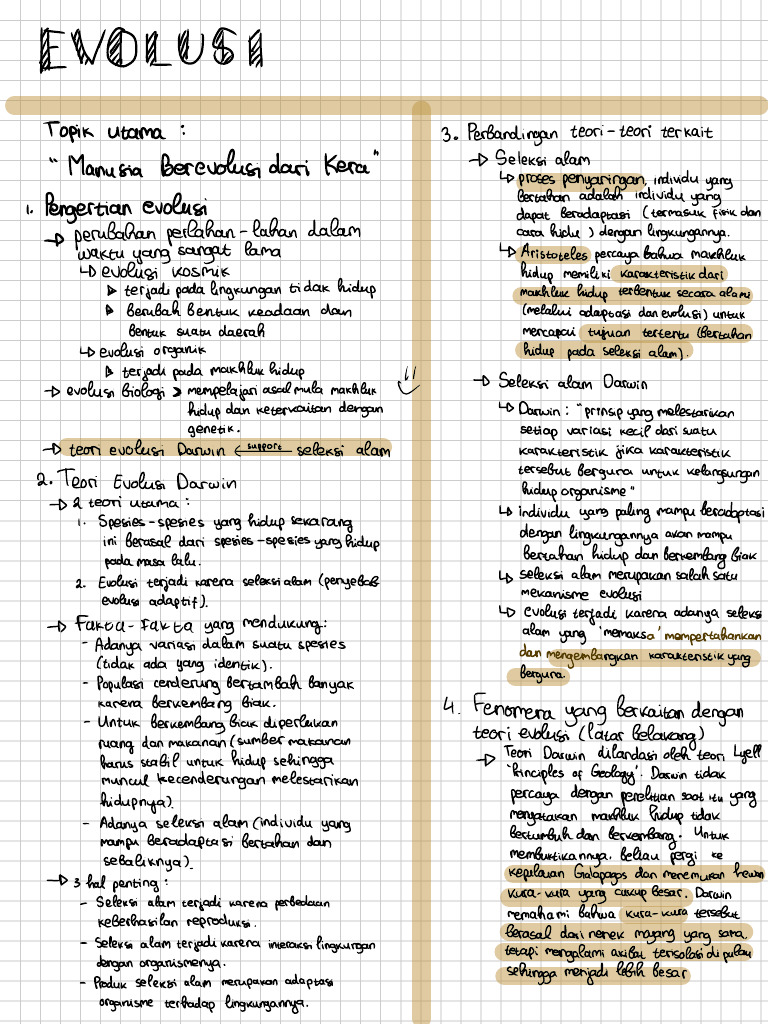 EVOLUSI
Topik utama :
"Manusia Berevolusi dari Kera"
1. Pengertian evolusi
→ perubahan perlahan-lahan dalam
waktu yang sangat lama
↳ evolusi kosmik
▷ terjadi pada lingkungan tidak hidup
▷ Berubah bentuk keadaan dan
bentuk suatu daerah
↳ evolusi organik
▷ terjadi pada makhluk hidup
→ evolusi biologi > mempelajari asal mula makhluk
hidup dan keterkaitan dengan
genetik.
→ teori evolusi Darwin ← support seleksi alam
2. Teori Evolusi Darwin
→ 2 teori utama :
1. Spesies-spesies yang hidup sekarang
ini berasal dari spesies-spesies yang hidup
pada masa lalu.
2. Evolusi terjadi karena seleksi alam (penyebab
evolusi adaptif).
→ Fakta-fakta yang mendukung:
- Adanya variasi dalam suatu spesies
(tidak ada yang identik).
- Populasi cenderung bertambah banyak
karena berkembang biak.
- Untuk berkembang biak diperlukan
ruang dan makanan (sumber makanan
harus stabil untuk hidup sehingga
muncul kecenderungan melestarikan
hidupnya).
- Adanya seleksi alam (individu yang
mampu beradaptasi bertahan dan
sebaliknya).
→ 3 hal penting :
- Seleksi alam terjadi karena perbedaan
keberhasilan reproduksi.
- Seleksi alam terjadi karena interaksi lingkungan
dengan organismenya.
- Produk seleksi alam merupakan adaptasi
organisme terhadap lingkungannya.
3. Perbandingan teori-teori terkait
→ Seleksi alam
↳ proses penyaringan, individu yang
bertahan adalah individu yang
dapat beradaptasi (termasuk fisik dan
cara hidu ) dengan lingkungannya.
↳ Aristoteles percaya bahwa makhluk
hidup memiliki karakteristik dari
makhluk hidup terbentuk secara alami
(melalui adaptasi dan evolusi) untuk
mencapai tujuan tertentu (bertahan
hidup pada seleksi alam).
→ Seleksi alam Darwin
↳ Darwin : "prinsip yang melestarikan
setiap variasi kecil dari suatu
karakteristik jika karakteristik
tersebut berguna untuk kelangsungan
hidup organisme"
↳ individu yang paling mampu beradaptasi
dengan lingkungannya akan mampu
bertahan hidup dan berkembang biak
↳ seleksi alam merupakan salah satu
mekanisme evolusi
↳ evolusi terjadi karena adanya seleksi
alam yang 'memaksa' mempertahankan
dan mengembangkan karakteristik yang
berguna.
4. Fenomena yang berkaitan dengan
teori evolusi (latar belakang)
→ Teori Darwin dilandasi oleh teori Lyell
'Principles of Geology'. Darwin tidak
percaya dengan penelitian saat itu yang
mengatakan makhluk hidup tidak
bertumbuh dan berkembang. Untuk
membuktikannya, beliau pergi ke
kepulauan Galapagos dan menemukan hewan
kura-kura yang cukup besar. Darwin
memahami bahwa kura-kura tersebut
berasal dari nenek moyang yang sama,
tetapi mengalami akibat terisolasi di pulau
sehingga menjadi lebih besar